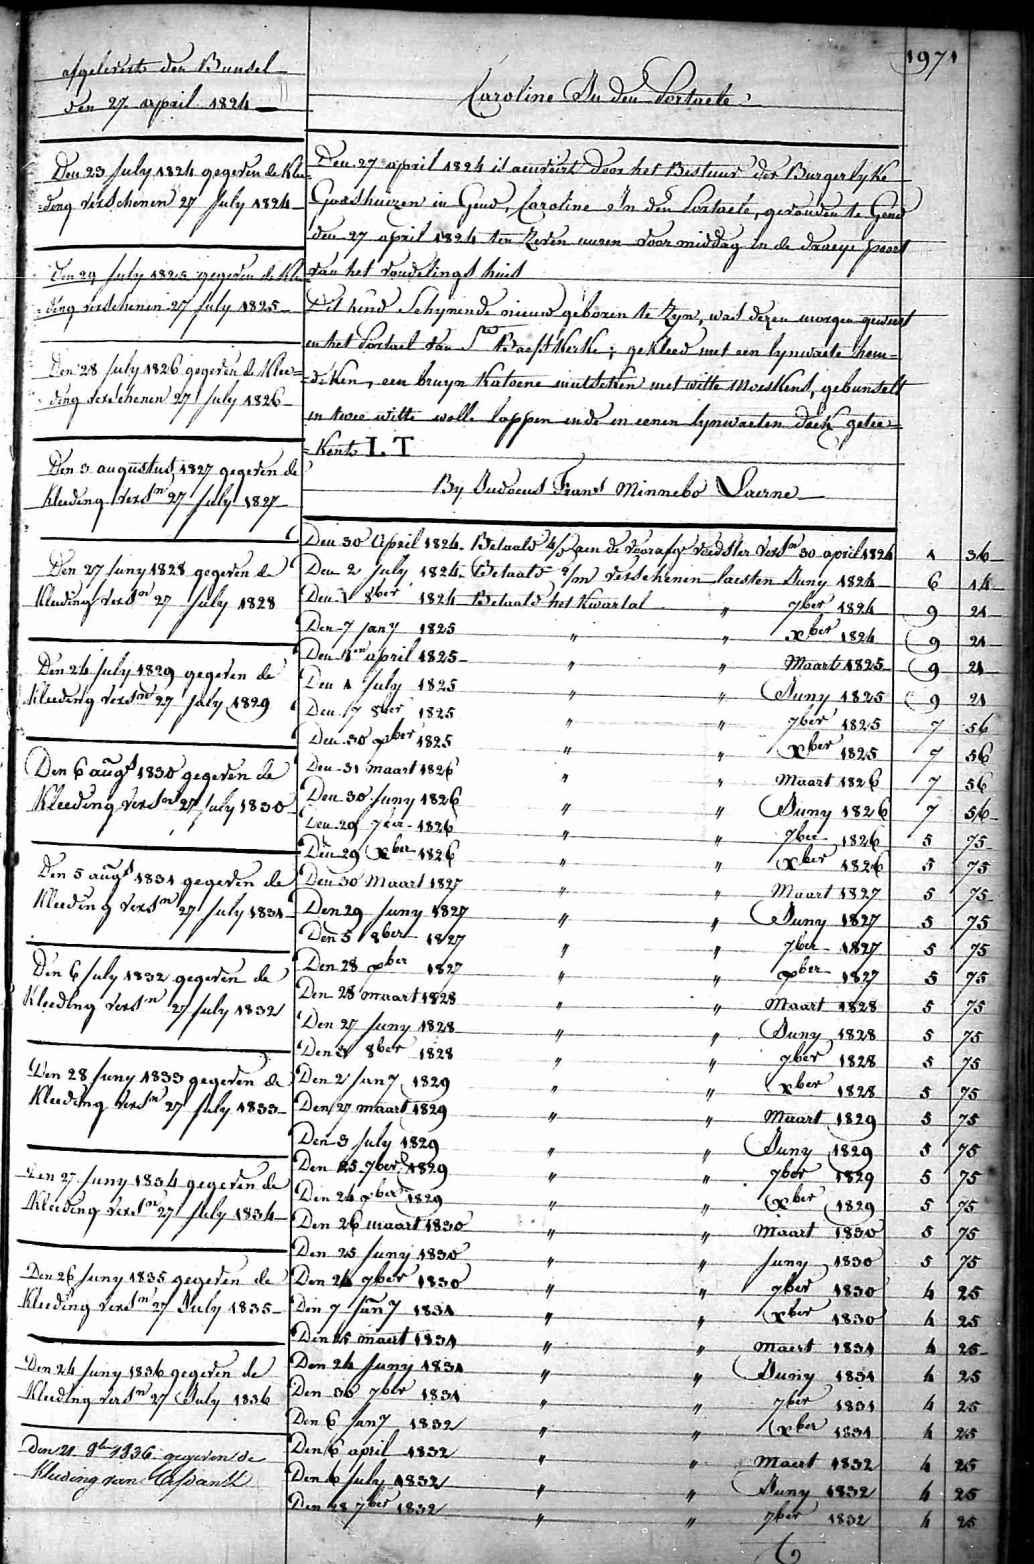 1971
afgelevert den Bunsel
den 27 april 1824
Den 23 July 1824 gegeven de Klee=
=ding verschenen 27 July 1824
Den 29 July 1825 gegeven de Kle
=ding verschenen 27 July 1825
Den 28 July 1826 gegeven de Klee=
=ding verschenen 27 July 1826
Den 3 augustus 1827 gegeven de
Kleeding vers.n 27 July 1827
Den 27 Juny 1828 gegeven de
Kleeding vers.n 27 July 1828
Den 24 July 1829 gegeven de
Kleeding vers.n 27 July 1829
Den 6 augs 1830 gegeven de
Kleeding vers.n 27 July 1830
Den 5 augs 1831 gegeven de
Kleeding vers.n 27 July 1831
Den 6 July 1832 gegeven de
Kleeding vers.n 27 July 1832
Den 28 Juny 1833 gegeven de
Kleeding vers.n 27 July 1833
Den 27 Juny 1834 gegeven de
Kleeding vers.n 27 July 1834
Den 26 Juny 1835 gegeven de
Kleeding vers.n 27 July 1835
Den 24 Juny 1836 gegeven de
Kleeding vers.n 27 July 1836
Den 21 1836 gegeven de
Kleeding van
Caroline In den Portaele
Den 27 april 1824 is door het Bestuur der Burgerlyke
Godshuizen in Gend, Caroline In den Portaele, gevonden te Gend
den 27 april 1824 ten zeven uuren voormiddag in de draeye poort
van het vondelings huis
Dit kind Schynende nieuw geboren te zyn, was dezen morgen geweest
in het Portael van Ste Baefs Kerke; gekleed met een lynwaete hem=
=deken, een bruyn Katoene mutseken met witte Mouskens, gebunselt
in twee witte wolle lappen ende in eenen lynwaeten doek getee=
=kent I. T
By Judocus Frans Minnebo Laerne
Den 30 April 1824 Betaald aen de voedster vers.n 30 april 1824 1 36
Den 2 July 1824 Betaald 2/m verschenen laesten Juny 1824 6 14
Den 1 8ber 1824 Betaald het Kwartal " 7ber 1824 9 21
Den 7 Jany 1825 " " xber 1824 9 21
Den 1en april 1825 " " Maart 1825 9 21
Den 1 July 1825 " " Juny 1825 9 21
Den 7 8ber 1825 " " 7ber 1825 7 56
Den 30 xber 1825 " " xber 1825 7 56
Den 31 maart 1826 " " Maart 1826 7 56
Den 30 Juny 1826 " " Juny 1826 7 56
Den 29 7ber 1826 " " 7ber 1826 5 75
Den 29 xber 1826 " " xber 1826 5 75
Den 30 Maart 1827 " " Maart 1827 5 75
Den 29 Juny 1827 " " Juny 1827 5 75
Den 5 8ber 1827 " " 7ber 1827 5 75
Den 28 xber 1827 " " xber 1827 5 75
Den 28 maart 1828 " " Maart 1828 5 75
Den 27 Juny 1828 " " Juny 1828 5 75
Den 3 8ber 1828 " " 7ber 1828 5 75
Den 2 Jany 1829 " " xber 1828 5 75
Den 27 maart 1829 " " Maart 1829 5 75
Den 3 July 1829 " " Juny 1829 5 75
Den 25 7ber 1829 " " 7ber 1829 5 75
Den 24 xber 1829 " " xber 1829 5 75
Den 26 maart 1830 " " Maart 1830 5 75
Den 25 Juny 1830 " " Juny 1830 5 75
Den 24 7ber 1830 " " 7ber 1830 4 25
Den 7 Jany 1831 " " xber 1830 4 25
Den 25 maart 1831 " " maert 1831 4 25
Den 24 Juny 1831 " " Juny 1831 4 25
Den 30 7ber 1831 " " 7ber 1831 4 25
Den 6 Jany 1832 " " xber 1831 4 25
Den 6 april 1832 " " Maert 1832 4 25
Den 6 July 1832 " " Juny 1832 4 25
Den 28 7ber 1832 " " 7ber 1832 4 25